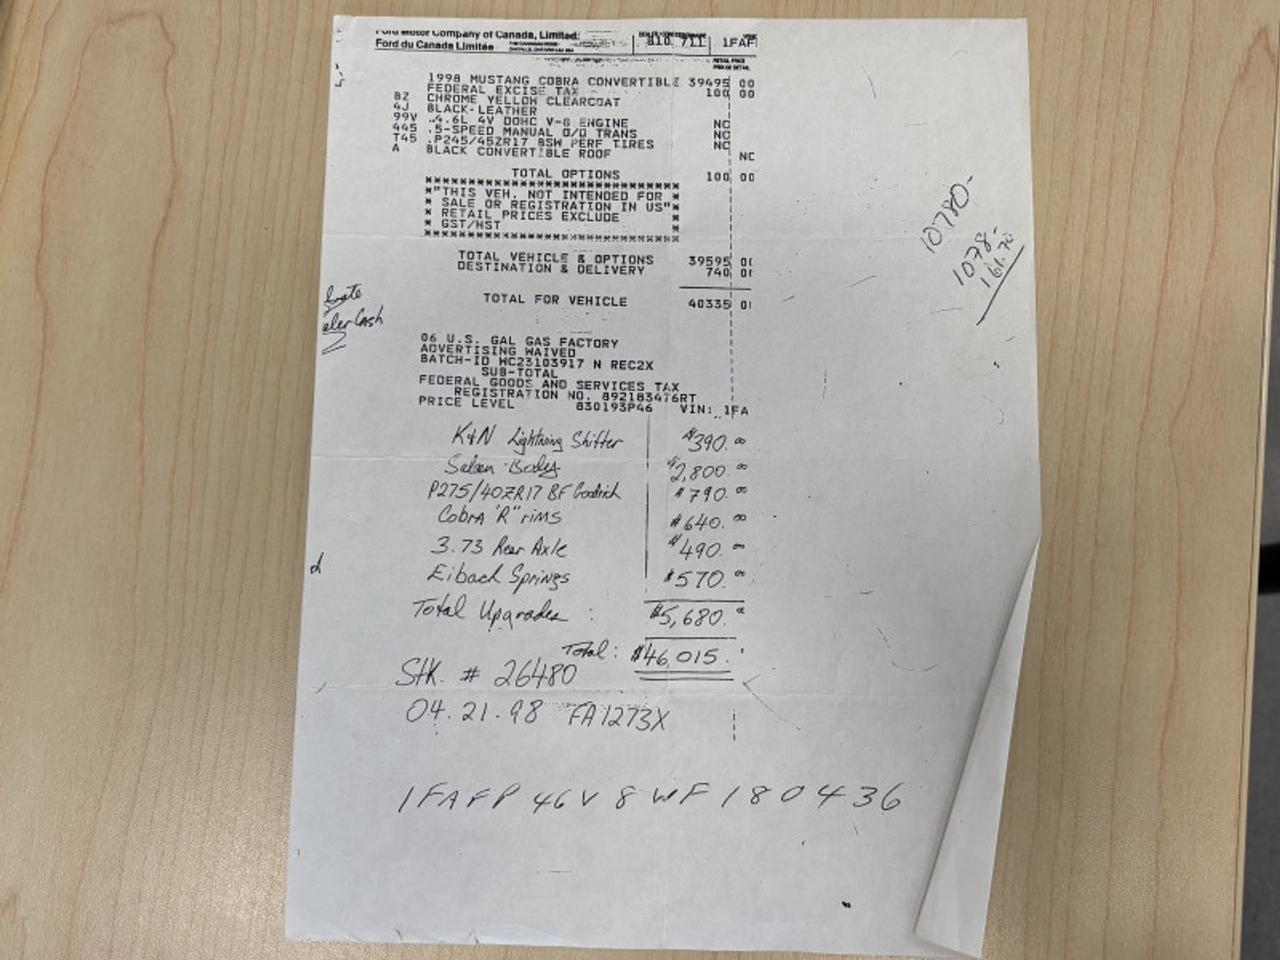 Ford Motor Company of Canada, Limited.
Ford du Canada Limitée
810 711 1FAF
1998 MUSTANG COBRA CONVERTIBLE 39495 00
FEDERAL EXCISE TAX 100 00
BZ CHROME YELLOW CLEARCOAT
4J BLACK-LEATHER
99V .4.6L 4V DOHC V-8 ENGINE NC
445 .5-SPEED MANUAL O/D TRANS NC
T45 .P245/45ZR17 BSW PERF TIRES NC
A BLACK CONVERTIBLE ROOF NC
TOTAL OPTIONS 100 00
*"THIS VEH. NOT INTENDED FOR *
* SALE OR REGISTRATION IN US"*
* RETAIL PRICES EXCLUDE *
* GST/HST *
TOTAL VEHICLE & OPTIONS 39595
DESTINATION & DELIVERY 740
TOTAL FOR VEHICLE 40335
06 U.S. GAL GAS FACTORY
ADVERTISING WAIVED
BATCH-ID WC23103917 N REC2X
SUB-TOTAL
FEDERAL GOODS AND SERVICES TAX
REGISTRATION NO. 892183476RT
PRICE LEVEL 830193P46 VIN: 1FA
K&N Lightning Shifter $390.00
Saleen Body $2,800.00
P275/40ZR17 BF Goodrich $790.00
Cobra "R" rims $640.00
3.73 Rear Axle $490.00
Eibach Springs $570.00
Total Upgrades : $5,680.
Total: $46,015.
Stk. # 26480
04.21.98 FA1273X
1FAFP46V8WF180436
10780-
1078-
161.70
aler Cash